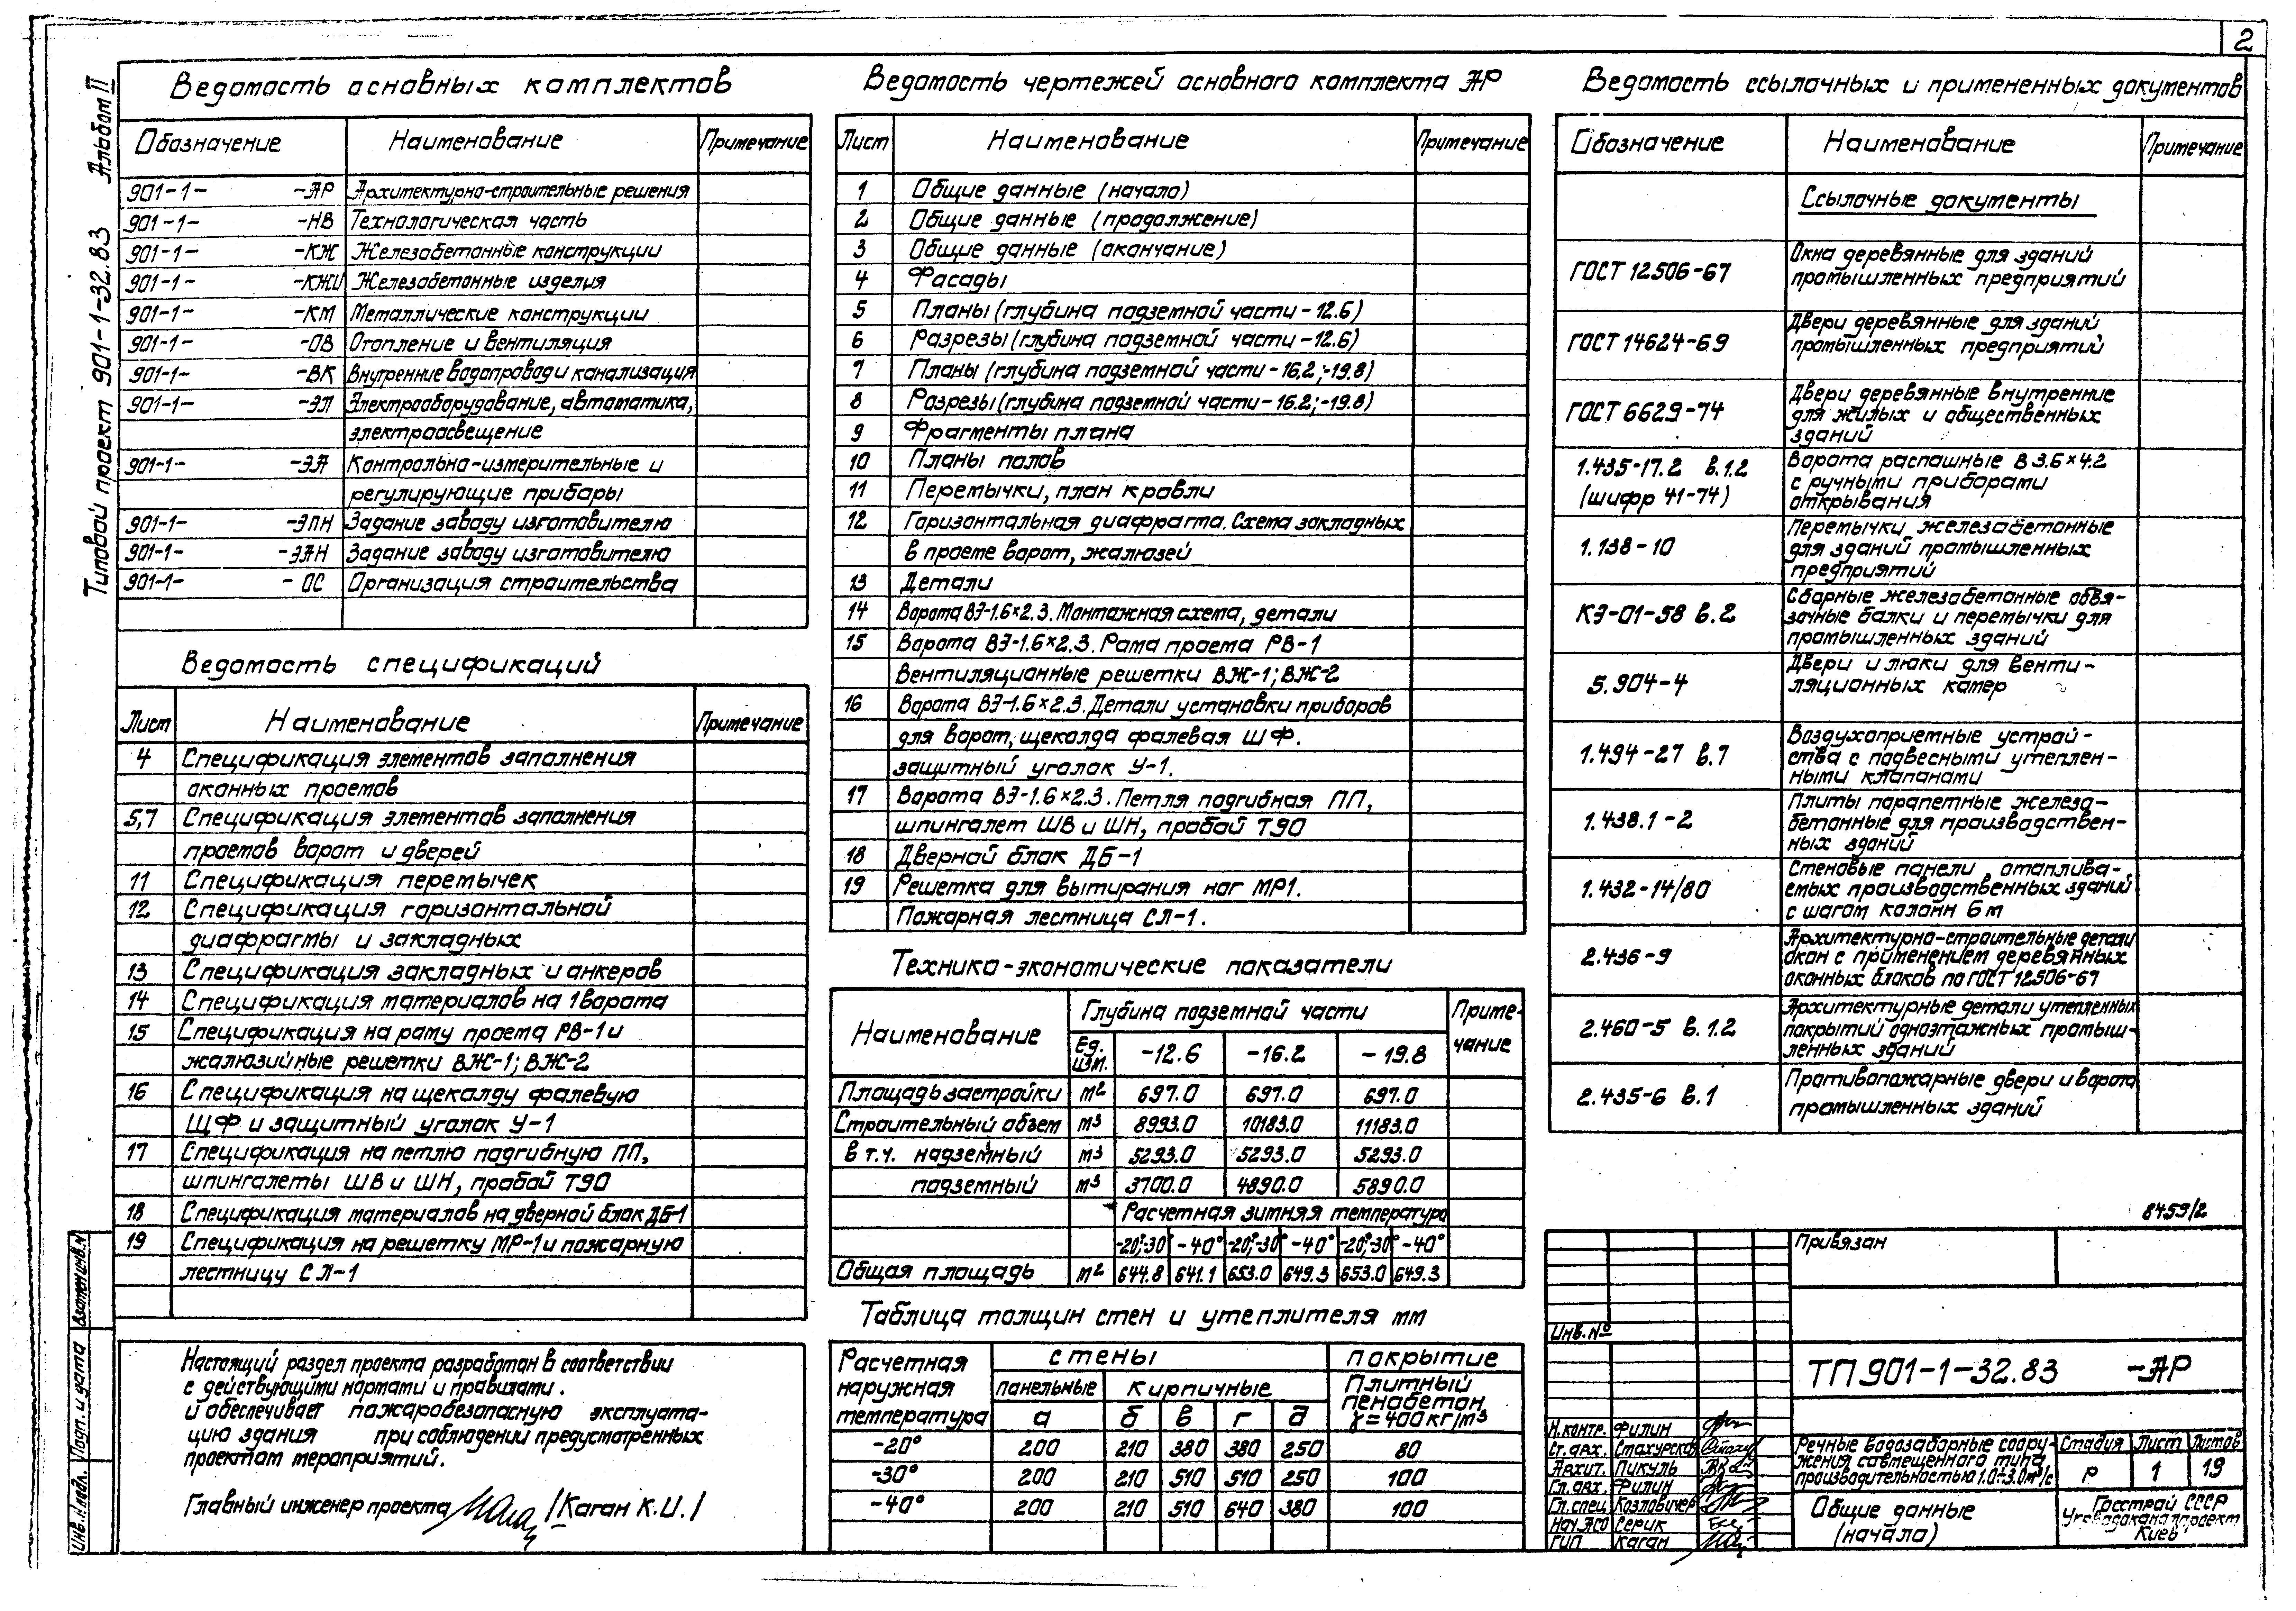 2
Типовой проект 901-1-32.83 Альбом II
Ведомость основных комплектов
Обозначение Наименование Примечание
901-1- -АР Архитектурно-строительные решения
901-1- -НВ Технологическая часть
901-1- -КЖ Железобетонные конструкции
901-1- -КЖИ Железобетонные изделия
901-1- -КМ Металлические конструкции
901-1- -ОВ Отопление и вентиляция
901-1- -ВК Внутренние водопровод и канализация
901-1- -ЭЛ Электрооборудование, автоматика,
электроосвещение
901-1- -ЭА Контрольно-измерительные и
регулирующие приборы
901-1- -ЭЛН Задание заводу изготовителю
901-1- -ЭАН Задание заводу изготовителю
901-1- - ОС Организация строительства
Ведомость спецификаций
Лист Наименование Примечание
4 Спецификация элементов заполнения
оконных проемов
5,7 Спецификация элементов заполнения
проемов ворот и дверей
11 Спецификация перемычек
12 Спецификация горизонтальной
диафрагмы и закладных
13 Спецификация закладных и анкеров
14 Спецификация материалов на 1 ворота
15 Спецификация на раму проема РВ-1 и
жалюзийные решетки ВЖ-1; ВЖ-2
16 Спецификация на щеколду фалевую
ЩФ и защитный уголок У-1
17 Спецификация на петлю подгибную ПП,
шпингалеты ШВ и ШН, пробой Т90
18 Спецификация материалов на дверной блок ДБ-1
19 Спецификация на решетку МР-1 и пожарную
лестницу СЛ-1
Настоящий раздел проекта разработан в соответствии
с действующими нормами и правилами.
и обеспечивает пожаробезопасную эксплуата-
цию здания при соблюдении предусмотренных
проектом мероприятий.
Главный инженер проекта /Каган К.И./
Ведомость чертежей основного комплекта АР
Лист Наименование Примечание
1 Общие данные (начало)
2 Общие данные (продолжение)
3 Общие данные (окончание)
4 Фасады
5 Планы (глубина подземной части -12.6)
6 Разрезы (глубина подземной части -12.6)
7 Планы (глубина подземной части -16.2; -19.8)
8 Разрезы (глубина подземной части -16.2; -19.8)
9 Фрагменты плана
10 Планы полов
11 Перемычки, план кровли
12 Горизонтальная диафрагма. Схема закладных
в проеме ворот, жалюзей
13 Детали
14 Ворота ВЭ-1.6×2.3. Монтажная схема, детали
15 Ворота ВЭ-1.6×2.3. Рама проема РВ-1
Вентиляционные решетки ВЖ-1; ВЖ-2
16 Ворота ВЭ-1.6×2.3. Детали установки приборов
для ворот, щеколда фалевая ШФ.
защитный уголок У-1.
17 Ворота ВЭ-1.6×2.3. Петля подгибная ПП,
шпингалет ШВ и ШН, пробой Т90
18 Дверной блок ДБ-1
19 Решетка для вытирания ног МР1.
Пожарная лестница СЛ-1.
Технико-экономические показатели
Наименование Глубина подземной части Приме-
чание
Ед. изм. -12.6 -16.2 -19.8
Площадь застройки м² 697.0 697.0 697.0
Строительный объем м³ 8993.0 10183.0 11183.0
в т.ч. надземный м³ 5293.0 5293.0 5293.0
подземный м³ 3700.0 4890.0 5890.0
Расчетная зимняя температура
-20°;-30° -40° -20°;-30° -40° -20°;-30° -40°
Общая площадь м² 644.8 641.1 653.0 649.3 653.0 649.3
Таблица толщин стен и утеплителя мм
Расчетная наружная температура стены покрытие
панельные кирпичные Плитный пенобетон γ=400кг/м³
а б в г д
-20° 200 210 380 380 250 80
-30° 200 210 510 510 250 100
-40° 200 210 510 640 380 100
Ведомость ссылочных и примененных документов
Обозначение Наименование Примечание
Ссылочные документы
ГОСТ 12506-67 Окна деревянные для зданий
промышленных предприятий
ГОСТ 14624-69 Двери деревянные для зданий
промышленных предприятий
ГОСТ 6629-74 Двери деревянные внутренние
для жилых и общественных
зданий
1.435-17.2 в.1.2 Ворота распашные В 3.6×4.2
(шифр 41-74) с ручными приборами
открывания
1.138-10 Перемычки железобетонные
для зданий промышленных
предприятий
КЭ-01-58 в.2 Сборные железобетонные обвя-
зочные балки и перемычки для
промышленных зданий
5.904-4 Двери и люки для венти-
ляционных камер
1.494-27 в.7 Воздухоприемные устрой-
ства с подвесными утеплен-
ными клапанами
1.438.1-2 Плиты парапетные железо-
бетонные для производствен-
ных зданий
1.432-14/80 Стеновые панели отаплива-
емых производственных зданий
с шагом колонн 6м
2.436-9 Архитектурно-строительные детали
окон с применением деревянных
оконных блоков по ГОСТ 12506-67
2.460-5 в.1.2 Архитектурные детали утепленных
покрытий одноэтажных промыш-
ленных зданий
2.435-6 в.1 Противопожарные двери и ворота
промышленных зданий
8459/2
Привязан
Инв.№
ТП 901-1-32.83 -АР
Н.контр. Филин
Ст.арх. Стахурская
Архит. Пикуль
Гл.арх. Филин
Гл.спец. Козловичер
Нач.АСО Серик
ГИП Каган
Речные водозаборные соору-
жения совмещенного типа
производительностью 1.0÷3.0м³/с
Стадия Лист Листов
Р 1 19
Общие данные
(начало)
Госстрой СССР
Укрводоканалпроект
Киев
Инв.N подл. Подп. и дата Взамен инв.N